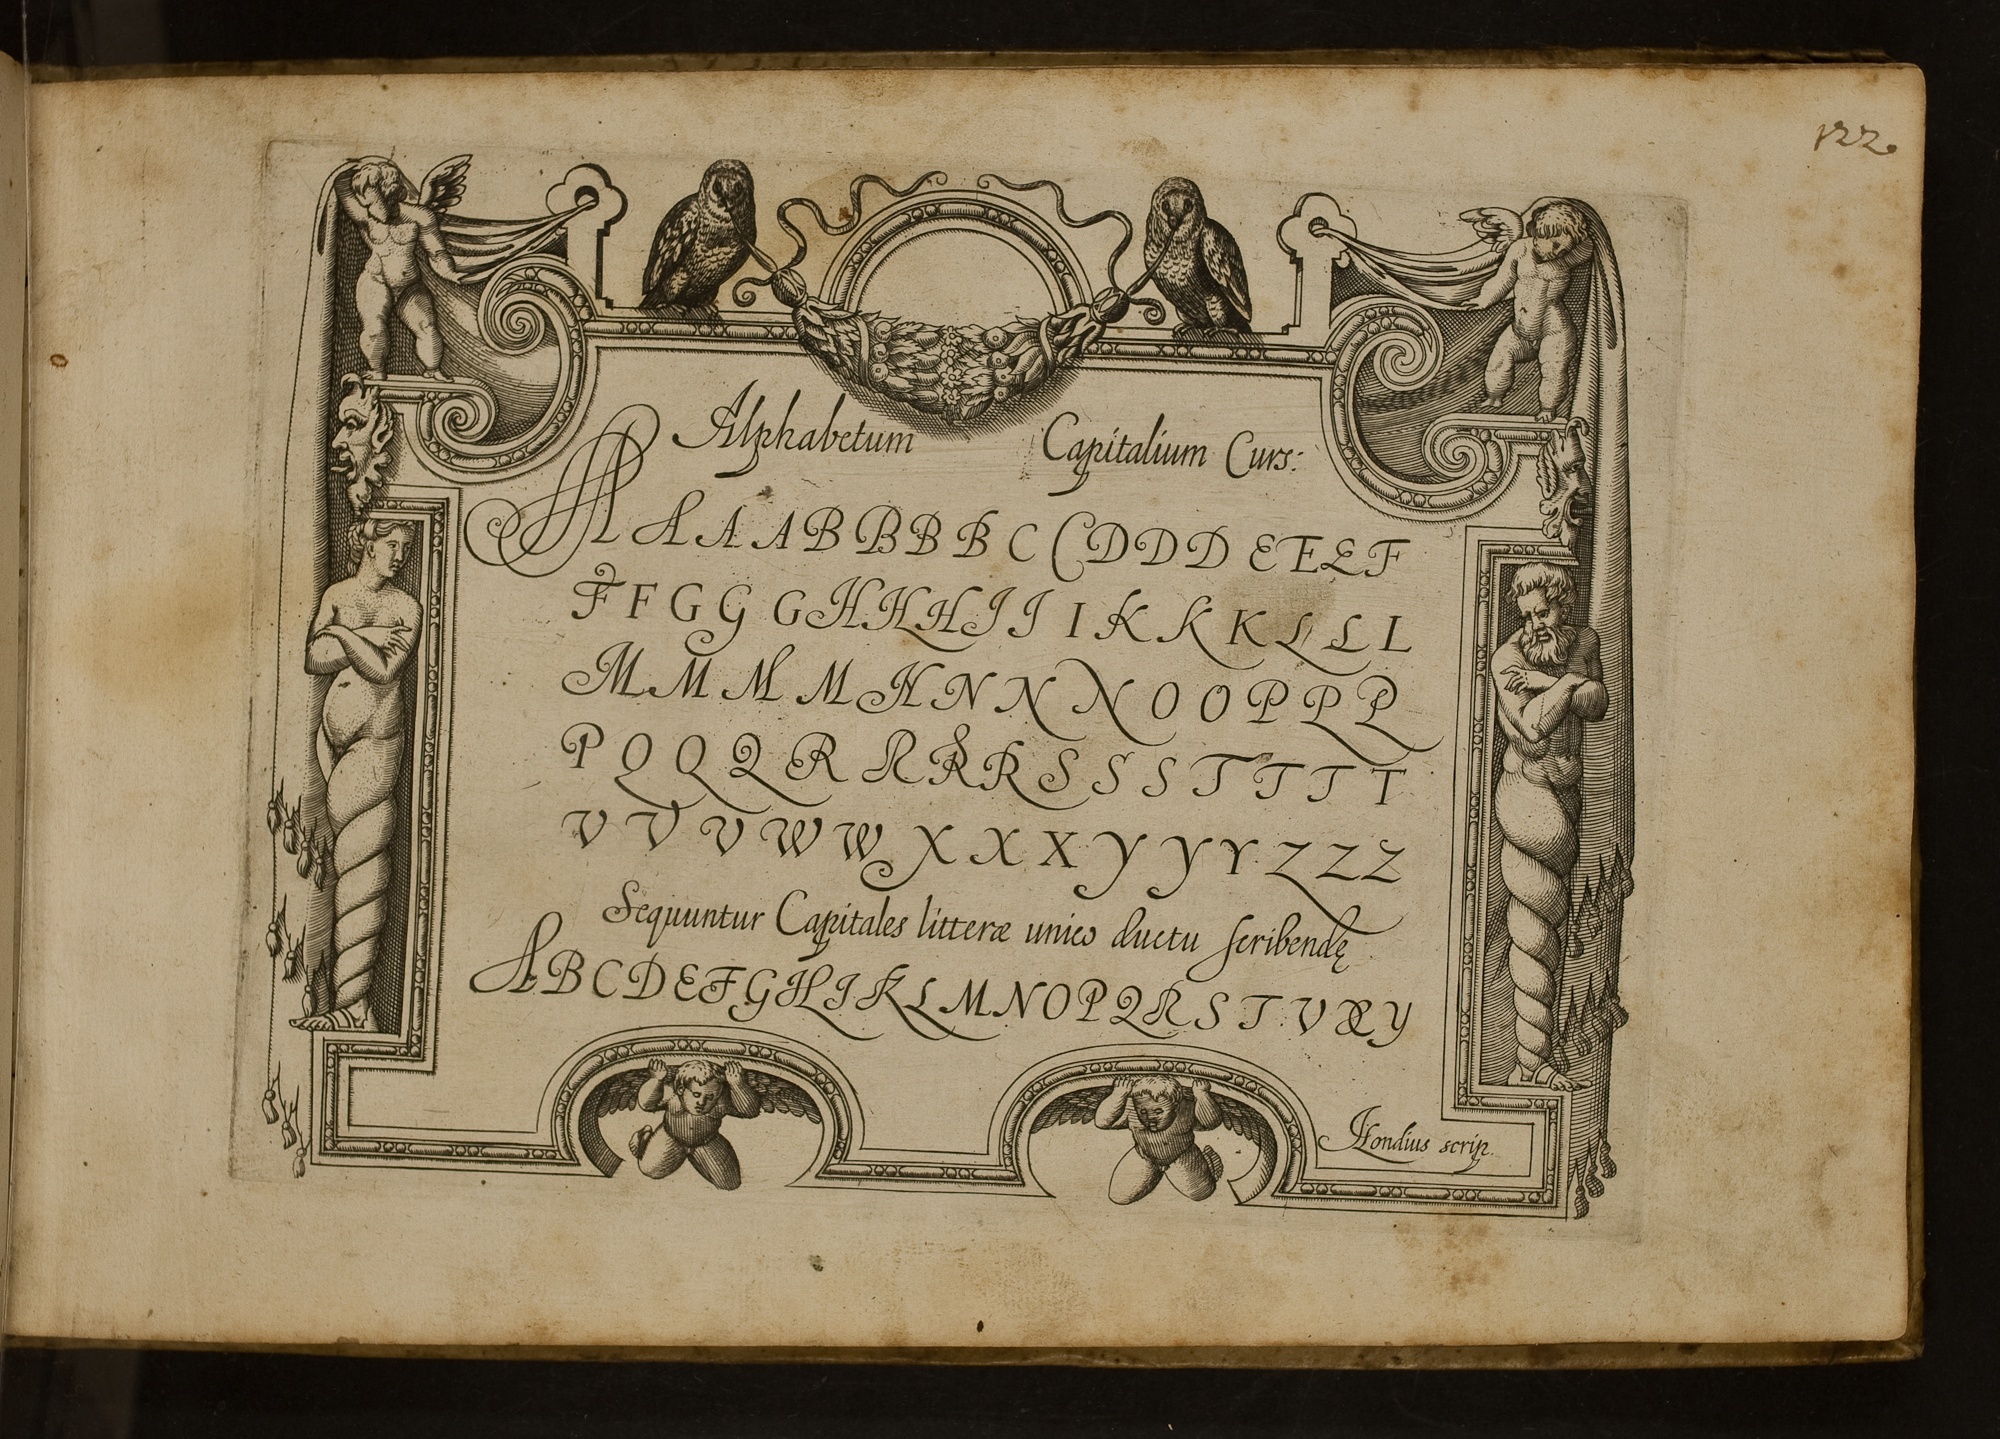 122.
Alphabetum Capitalium Curs:
A A A A B B B B C C D D D E E E F
F F G G G H H H I I I K K K L L L
M M M M N N N N O O P P P
P Q Q Q R R R R S S S T T T T
V V V W W X X X Y Y Y Z Z Z
Sequuntur Capitales litteræ unico ductu scribendę
A B C D E F G H I K L M N O P Q R S T V X Y
Hondius scrip.